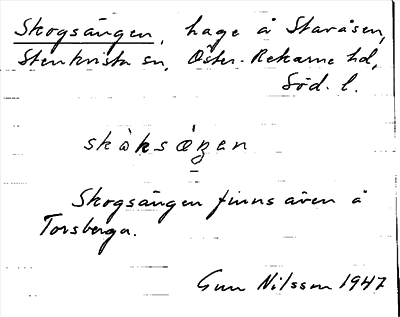 Skogsängen, hage å Staråsen,
Stenkvista sn, Öster-Rekarne hd,
Söd. l.
skòksæ̀ŋen
Skogsängen finns även å
Torsberga.
Gun Nilsson 1947